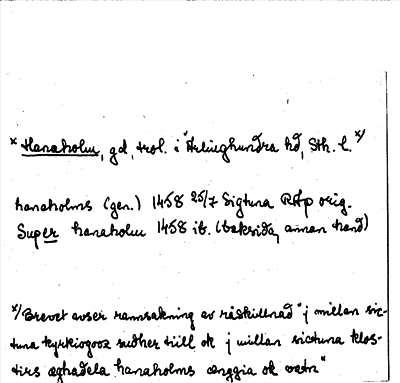 x Hanaholm, gd, trol. i Ärlinghundra hd, Sth. l. x/
hanaholms (gen.) 1458 25/7 Sigtuna RAp orig.
Super hanaholm 1458 ib. (baksida, annan hand)
x/ Brevet avser rannsakning av råskillnad "j millan sic-
tuna kyrkiogooz sudher till ok j millan sictuna klos-
tirs æghadela hanaholms ænggia ok vatn"